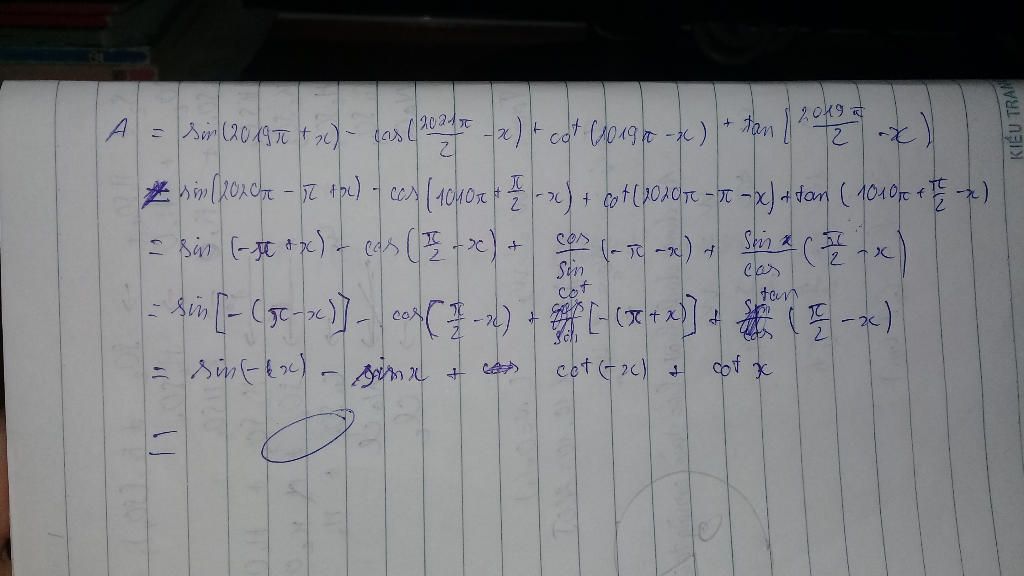 A = sin(2019π + x) - cos(2021π/2 - x) + cot(2019π - x) + tan(2019π/2 - x)
= sin(2020π - π + x) - cos(1010π + π/2 - x) + cot(2020π - π - x) + tan(1010π + π/2 - x)
= sin(-π + x) - cos(π/2 - x) + cos/sin(-π - x) + sin x/cos(π/2 - x)
= sin[-(π - x)] - cos(π/2 - x) + cot[-(π + x)] + tan(π/2 - x)
= sin(-x) - sin x + cot(-x) + cot x
=
KIỀU TRAN